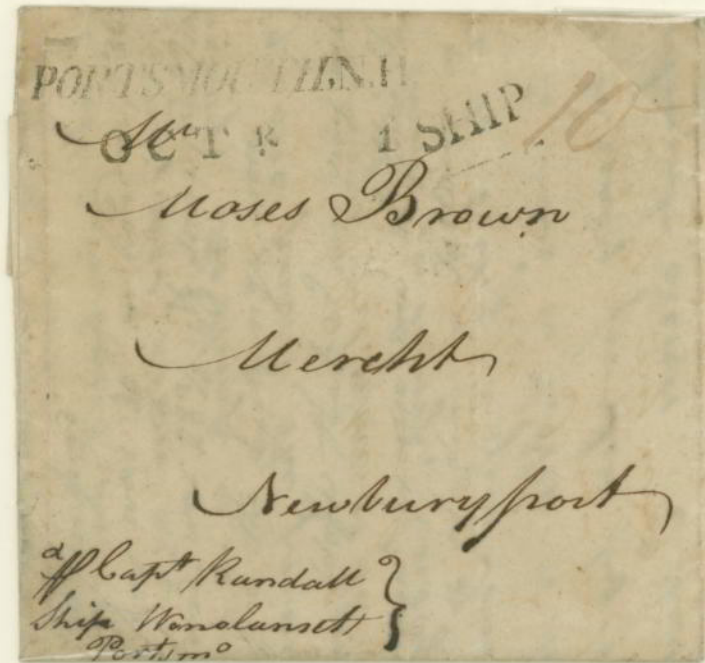 PORTSMOUTH, N.H.
OCT R 1 SHIP 10
Mr
Moses Brown
Mercht
Newburyport
Capt Randall
Ship Wonolansett
Portsmo